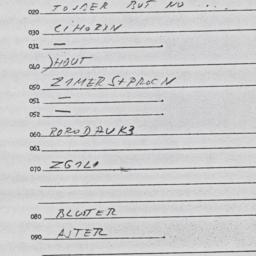 020 TOUBER BUT NO ....
030 CIHORIN
031 —
040 )HOUT
050 ZIMERS+PROCN
051 —
052 —
060 BORODAUKS
061
070 ZG120
080 BLUSTER
090 ASTER